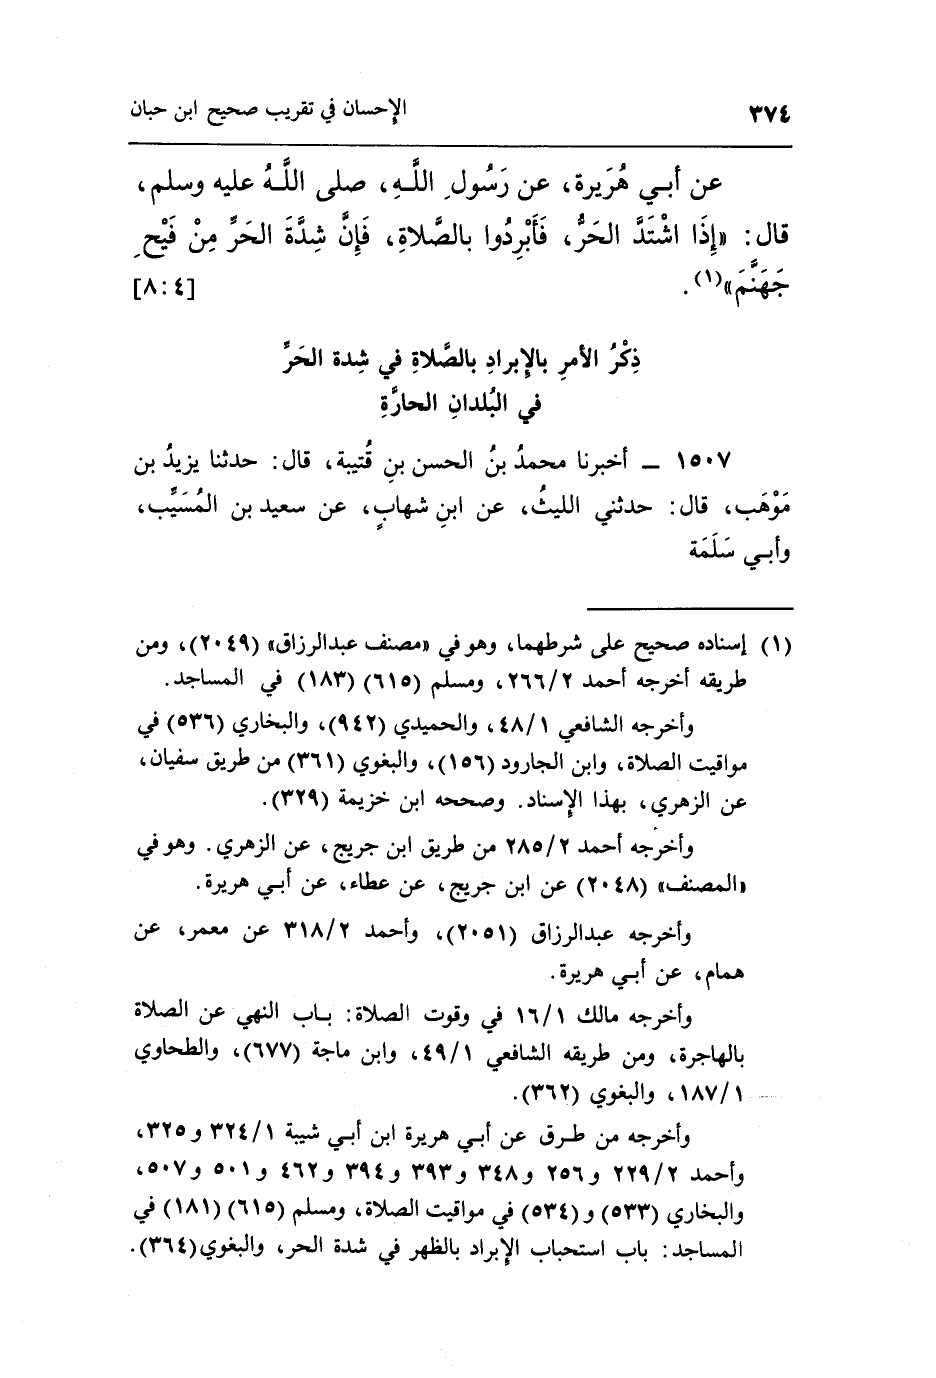 ٣٧٤ الإحسان في تقريب صحيح ابن حبان
عن أبي هُرَيرة، عن رَسُولِ اللَّهِ، صلى اللَّهُ عليه وسلم،
قال: «إِذَا اشْتَدَّ الحَرُّ، فَأَبْرِدُوا بالصَّلاةِ، فَإِنَّ شِدَّةَ الحَرِّ مِنْ فَيْحِ
جَهَنَّمَ»(١). [٤: ٨]
ذِكْرُ الأمرِ بالإبرادِ بالصَّلاةِ في شِدة الحَرِّ
في البُلدانِ الحارَّةِ
١٥٠٧ ـ أخبرنا محمدُ بنُ الحسن بنِ قُتيبة، قال: حدثنا يزيدُ بن
مَوْهَب، قال: حدثني الليثُ، عن ابنِ شهابٍ، عن سعيد بن المُسَيِّب،
وأبي سَلَمَة
(١) إسناده صحيح على شرطهما، وهو في «مصنف عبدالرزاق» (٢٠٤٩)، ومن
طريقه أخرجه أحمد ٢/٢٦٦، ومسلم (٦١٥) (١٨٣) في المساجد.
وأخرجه الشافعي ١/٤٨، والحميدي (٩٤٢)، والبخاري (٥٣٦) في
مواقيت الصلاة، وابن الجارود (١٥٦)، والبغوي (٣٦١) من طريق سفيان،
عن الزهري، بهذا الإسناد. وصححه ابن خزيمة (٣٢٩).
وأخرجه أحمد ٢/٢٨٥ من طريق ابن جريج، عن الزهري. وهو في
«المصنف» (٢٠٤٨) عن ابن جريج، عن عطاء، عن أبي هريرة.
وأخرجه عبدالرزاق (٢٠٥١)، وأحمد ٢/٣١٨ عن معمر، عن
همام، عن أبي هريرة.
وأخرجه مالك ١/١٦ في وقوت الصلاة: باب النهي عن الصلاة
بالهاجرة، ومن طريقه الشافعي ١/٤٩، وابن ماجة (٦٧٧)، والطحاوي
١/١٨٧، والبغوي (٣٦٢).
وأخرجه من طرق عن أبي هريرة ابن أبي شيبة ١/٣٢٤ و٣٢٥،
وأحمد ٢/٢٢٩ و٢٥٦ و٣٤٨ و٣٩٣ و٣٩٤ و٤٦٢ و٥٠١ و٥٠٧،
والبخاري (٥٣٣) و(٥٣٤) في مواقيت الصلاة، ومسلم (٦١٥) (١٨١) في
المساجد: باب استحباب الإبراد بالظهر في شدة الحر، والبغوي(٣٦٤).